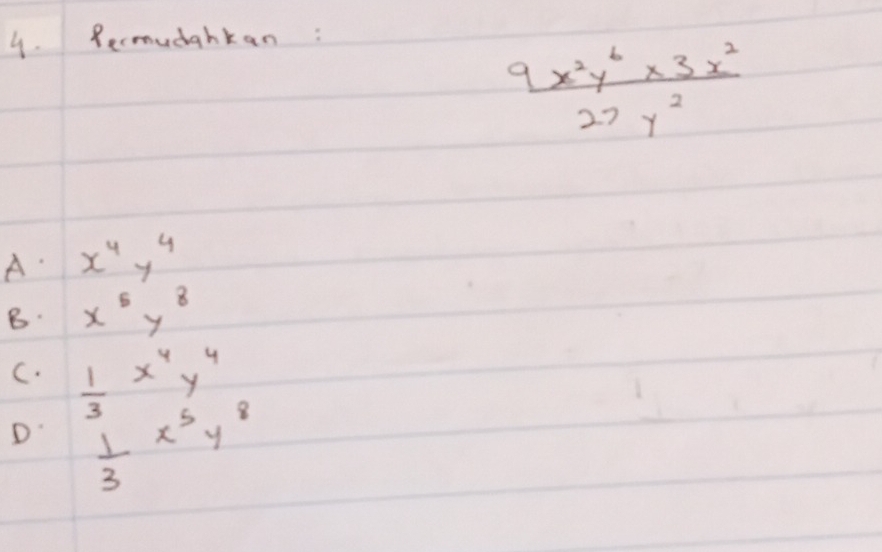 4. Permudahkan :
9x²y⁶ × 3x²
27y²
A. x⁴y⁴
B. x⁵y⁸
C. 1/3 x⁴y⁴
D. 1/3 x⁵y⁸